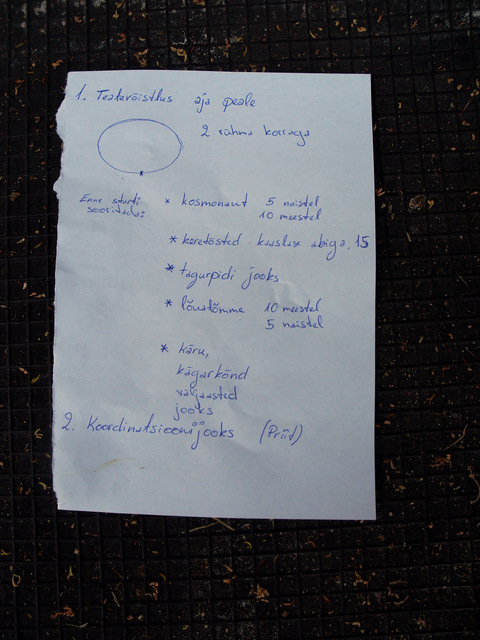 1. Teatevõistlus aja peale
2 rühma korraga
Enne starti
sooritada:
* kosmonaut 5 naistel
10 meestel
* keretõsted kaaslase abiga, 15
* tagurpidi jooks
* lõuatõmme 10 meestel
5 naistel
* käru,
kägarkõnd
väljaasted
jooks
2. Koordinatsioonijooks (Priit)